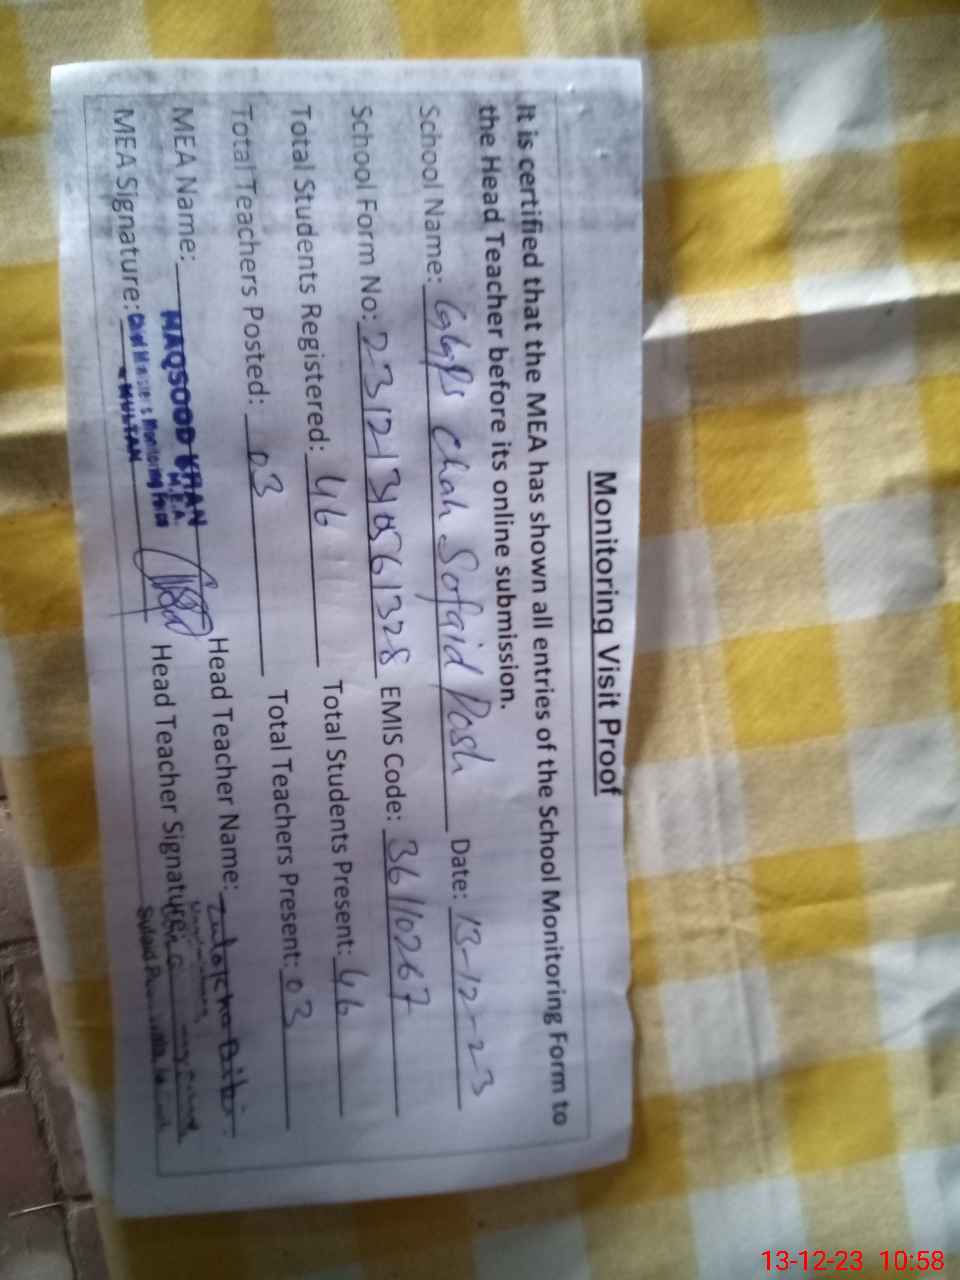 Monitoring Visit Proof
It is certified that the MEA has shown all entries of the School Monitoring Form to
the Head Teacher before its online submission.
School Name: GGPS Chah Sofaid Posh Date: 13-12-23
School Form No: EMIS Code: 36110267
Total Students Registered: 46 Total Students Present: 46
Total Teachers Posted: 03 Total Teachers Present: 03
MEA Name: MAQSOOD KHAN Head Teacher Name:
M.E.A
MEA Signature: Chief Minister's Monitoring Force Head Teacher Signature:
MULTAN
13-12-23 10:58